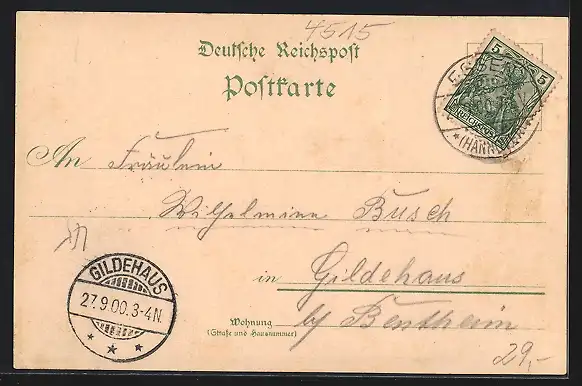 4515
Deutsche Reichspost
Postkarte
5 5
(HANN)
An Fräulein
Wilhelmine Busch
in Gildehaus
GILDEHAUS
27.9.00.3-4N.
* * *
Wohnung
(Straße und Hausnummer)
b/ Bentheim
29,-